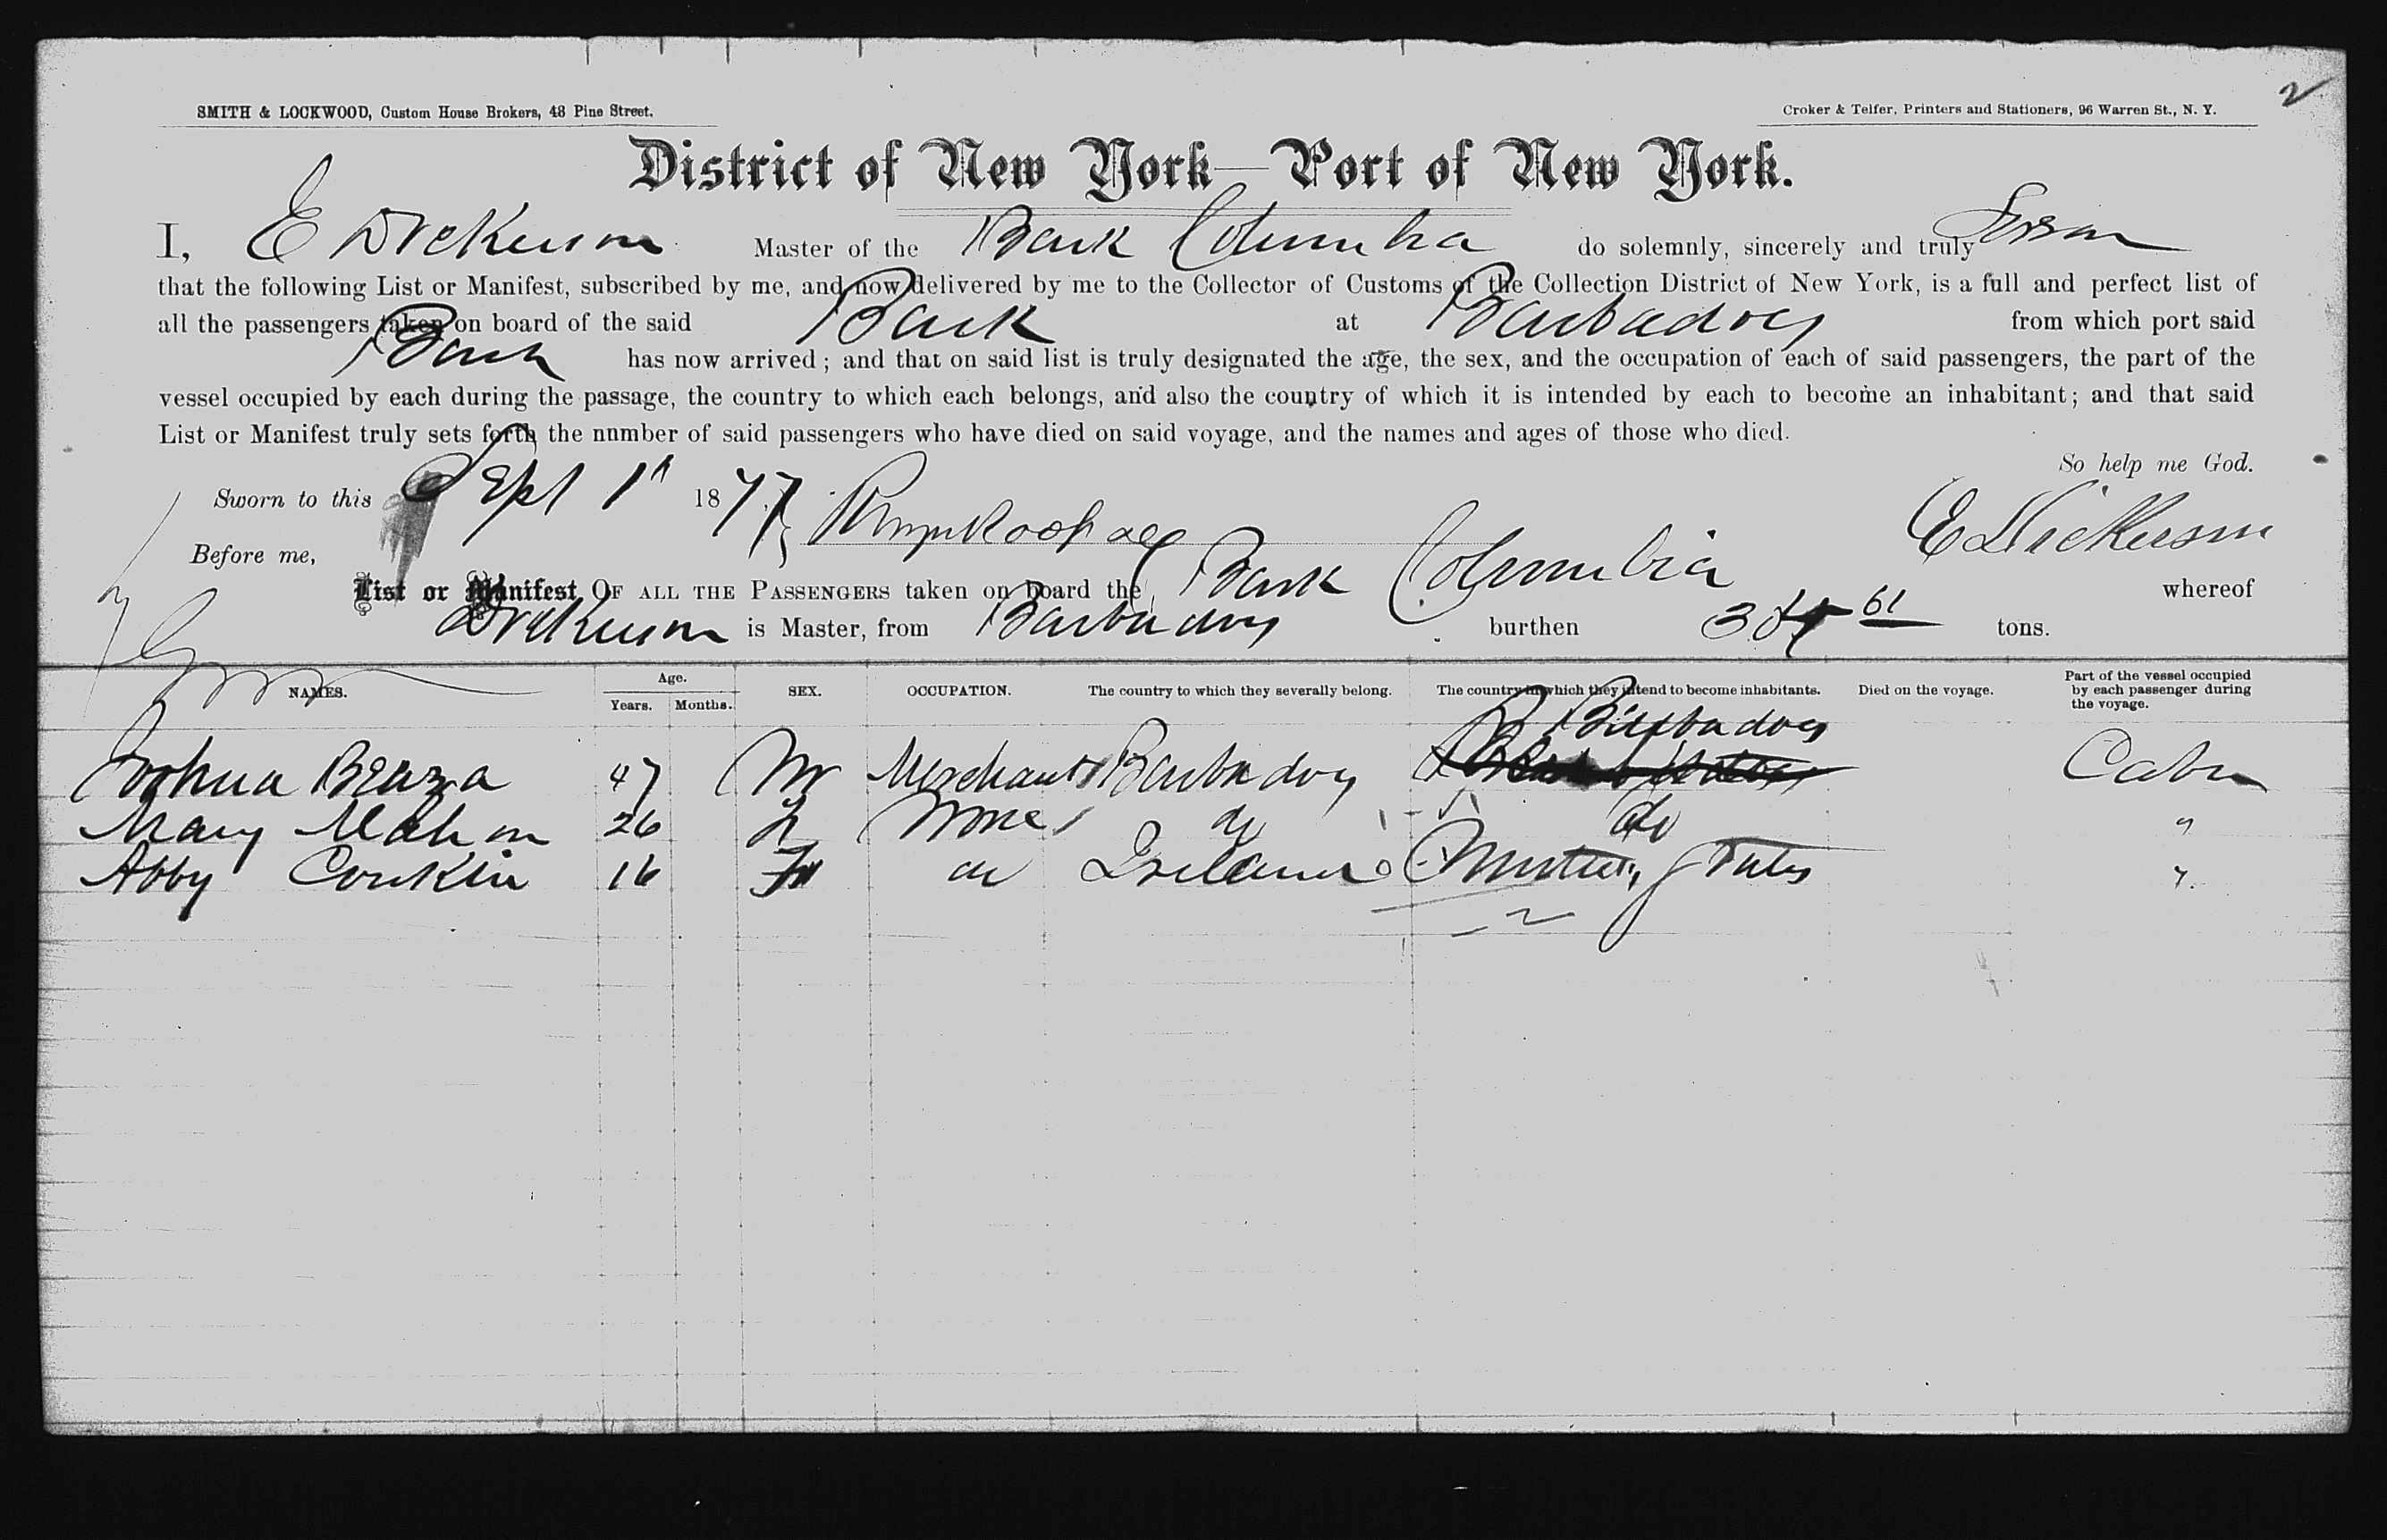 2
SMITH & LOCKWOOD, Custom House Brokers, 48 Pine Street.
Croker & Telfer, Printers and Stationers, 96 Warren St., N. Y.
District of New York—Port of New York.
I, E Dickerson Master of the Bark Columbia do solemnly, sincerely and truly
that the following List or Manifest, subscribed by me, and now delivered by me to the Collector of Customs of the Collection District of New York, is a full and perfect list of
all the passengers taken on board of the said Bark at Barbadoes from which port said
Bark has now arrived; and that on said list is truly designated the age, the sex, and the occupation of each of said passengers, the part of the
vessel occupied by each during the passage, the country to which each belongs, and also the country of which it is intended by each to become an inhabitant; and that said
List or Manifest truly sets forth the number of said passengers who have died on said voyage, and the names and ages of those who died.
So help me God.
Sworn to this Sept 1st 1877
Before me, E Dickerson
List or Manifest OF ALL THE PASSENGERS taken on board the Bark Columbia whereof
Dickerson is Master, from Barbadoes burthen tons.
NAMES. Age. Years. Months. SEX. OCCUPATION. The country to which they severally belong. The country in which they intend to become inhabitants. Died on the voyage. Part of the vessel occupied by each passenger during the voyage.
Barbadoes
Joshua 47 M Merchant Barbadoes Cabin
Mary Mahon 26 None do do "
Abby Conklin 16 F do Ireland United States "
2